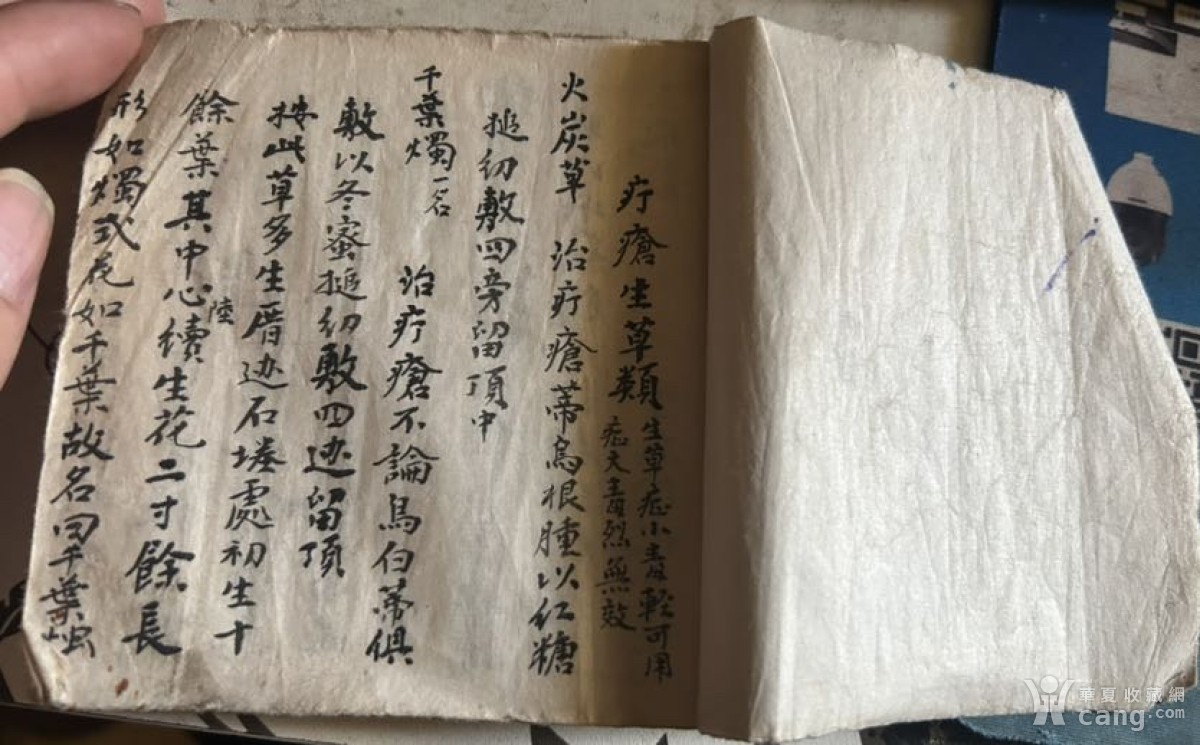 疔瘡生草類 生草症小毒輕可用
症大毒烈無效
火炭草 治疔瘡蒂烏根腫以紅糖
搥幼敷四旁留頂中
千葉燭一名 治疔瘡不論烏白蒂俱
敷以冬蜜搥幼敷四边留頂
按此草多生厝边石堘處初生十
陸
餘葉其中心續生花二寸餘長
形如燭式花如千葉故名曰千葉
華夏收藏網
cang.com